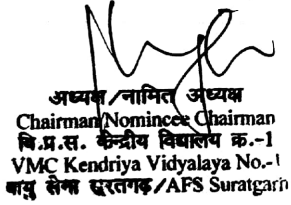 अध्यक्ष/नामित अध्यक्ष
Chairman/Nominee Chairman
वि.प्र.स. केन्द्रीय विद्यालय क्र.-1
VMC Kendriya Vidyalaya No.-1
वायु सेना सूरतगढ़/AFS Suratgarh